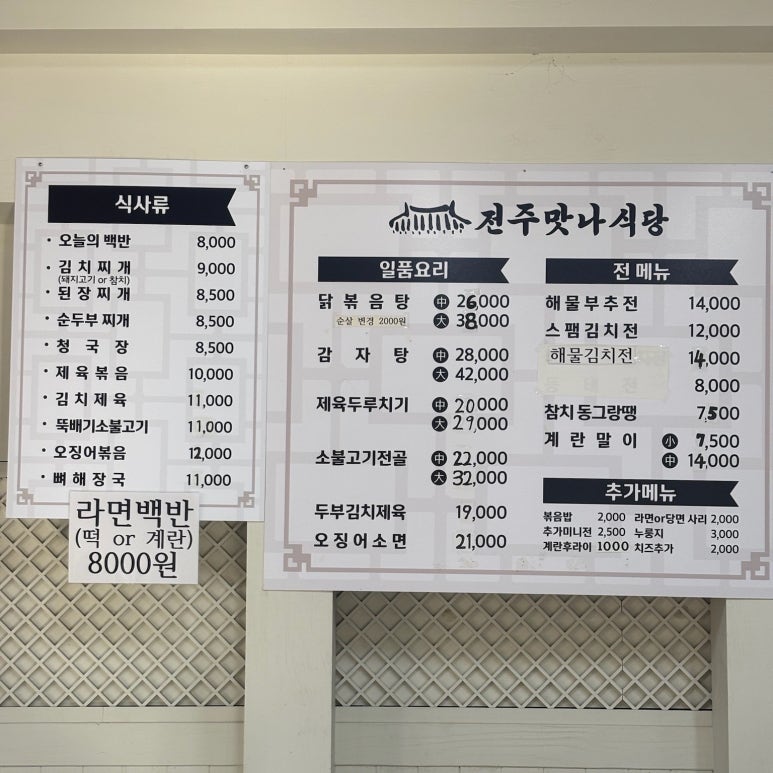 식사류
· 오늘의 백반 8,000
· 김치찌개 9,000
(돼지고기 or 참치)
· 된장찌개 8,500
· 순두부찌개 8,500
· 청국장 8,500
· 제육볶음 10,000
· 김치제육 11,000
· 뚝배기소불고기 11,000
· 오징어볶음 12,000
· 뼈해장국 11,000
라면백반
(떡 or 계란)
8000원
전주맛나식당
일품요리
닭볶음탕 中 26,000
순살 변경 2000원 大 38,000
감자탕 中 28,000
大 42,000
제육두루치기 中 20,000
大 29,000
소불고기전골 中 22,000
大 32,000
두부김치제육 19,000
오징어소면 21,000
전 메뉴
해물부추전 14,000
스팸김치전 12,000
해물김치전 14,000
8,000
참치동그랑땡 7,500
계란말이 小 7,500
中 14,000
추가메뉴
볶음밥 2,000 라면or당면 사리 2,000
추가미니전 2,500 누룽지 3,000
계란후라이 1000 치즈추가 2,000